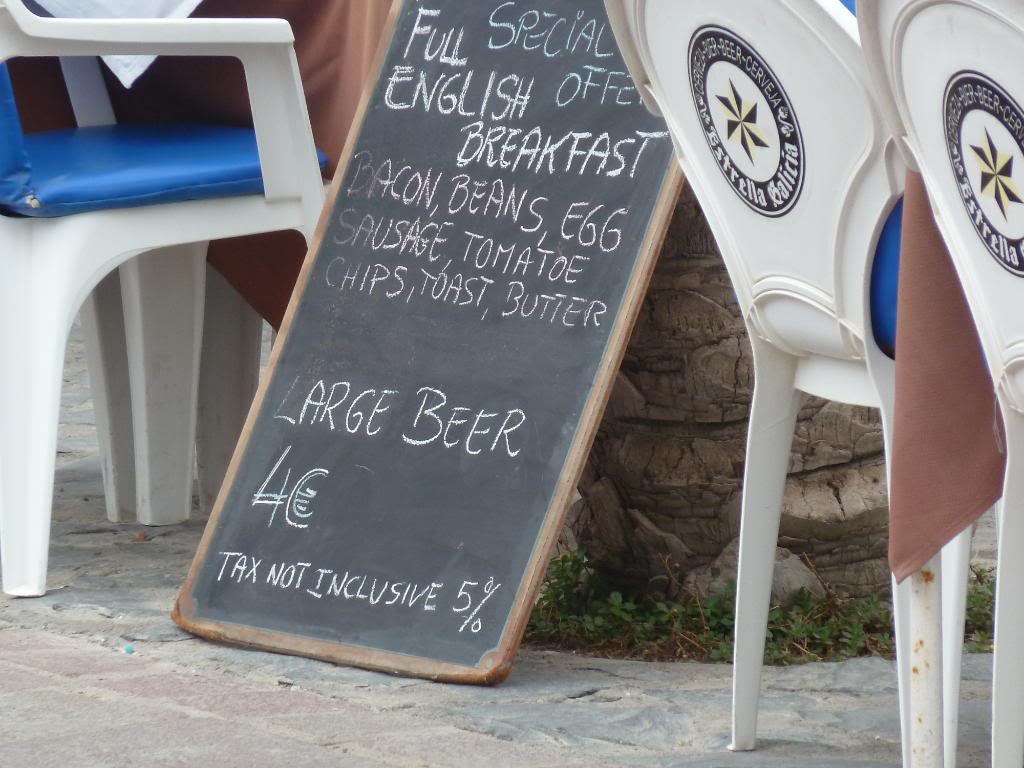 SPECIAL
FULL
OFFE
ENGLISH
BREAKFAST
BACON, BEANS, EGG
SAUSAGE, TOMATOE
CHIPS, TOAST, BUTTER
LARGE BEER
4€
TAX NOT INCLUSIVE 5%
PIER-BEER-CERVEJA
Estrella Galicia
BIER-BEER-CERVEJA
Estrella